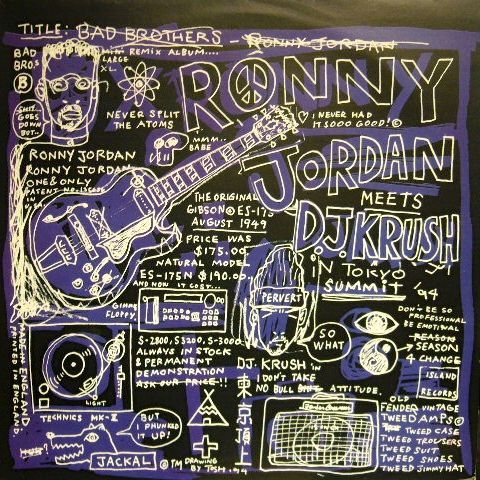 TITLE: BAD BROTHERS - RONNY JORDAN
BAD
BROS.
B
MINI REMIX ALBUM....
LARGE
XL.
SHIT
GOES
DOWN
BUT..
NEVER SPLIT
THE ATOMS
RONNY
I NEVER HAD
IT SOOO GOOD! ©
MMM..
BABE
JORDAN
MEETS
D.J. KRUSH
IN TOKYO
SUMMIT '94
RONNY JORDAN
RONNY JORDAN
ONE & ONLY
PATENT NO.
THE ORIGINAL
GIBSON © ES-175
AUGUST 1949
PRICE WAS
$175.00
NATURAL MODEL
ES-175N $190.00..
AND NOW IT COST...
GIMME
FLOPPY
S-2800, S3200, S-3000
ALWAYS IN STOCK
& PERMANENT
DEMONSTRATION
ASK OUR PRICE!!
"PERVERT"
SO
WHAT
DON'T BE SO
PROFESSIONAL
BE EMOTIONAL
REASON
SEASON
4 CHANGE
ISLAND
RECORDS
MADE IN ENGLAND
PRINTED IN ENGLAND
LIGHT
TECHNICS MK-II
BUT
I PHUNKED
IT UP!
JACKAL
© TM DRAWING
BY TOSH. 94
D.J. KRUSH in
I DON'T TAKE
NO BULL SHIT ATTITUDE.
東京頂上
OLD
FENDER VINTAGE
TWEED AMPS ©
TWEED CASE
TWEED TROUSERS
TWEED SUIT
TWEED SHOES
TWEED JIMMY HAT